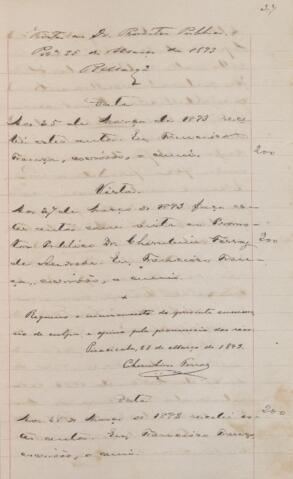 37
Vista ao Dr. Promotor Publico,
25 de Março de 1893
Data
Aos 25 de Março de 1893 rece-
bi estes autos. Eu, Francisco
França, escrivão, o escrevi.
200
Vista
Aos 27 de Março de 1893 faço es-
tes autos com vista ao Promo-
tor Publico Dr. Cherubim Ferraz
de Eu, Francisco Fran-
ça, escrivão, o escrevi.
200
Requeiro o encerramento do presente summa-
rio de culpa e opino pela pronuncia dos réos
Piracicaba, 28 de Março de 1893.
Cherubim Ferraz
Data
Aos 28 de Março de 1893 recebi es-
tes autos. Eu, Francisco França
escrivão, o escrevi.
200